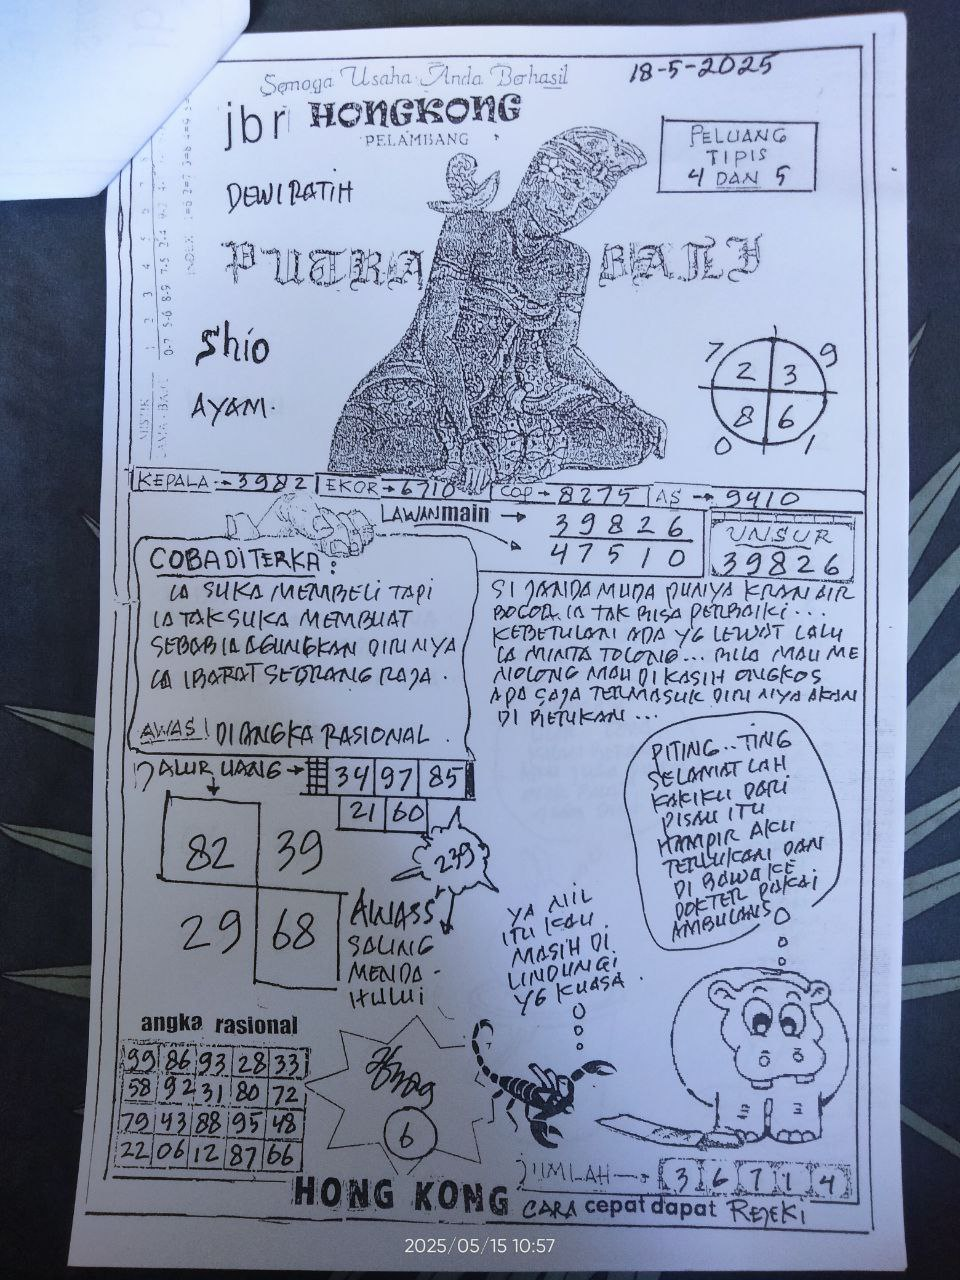 Semoga Usaha Anda Berhasil
18-5-2025
jbr HONGKONG
PELAMBANG
PELUANG
TIPIS
4 DAN 5
DEWI RATIH
PUTRA BALI
Shio
AYAM.
7 9
2 3
8 6
0 1
KEPALA → 3982 EKOR → 6710 COP → 8275 AS → 9410
LAWAN main → 39826
47510
UNSUR
39826
COBA DITERKA :
IA SUKA MEMBELI TAPI
IA TAK SUKA MEMBUAT
SEBAB IA AGUNGKAN DIRINYA
IA IBARAT SEORANG RAJA.
AWAS! DI ANGKA RASIONAL.
SI JANDA MUDA PUNYA KRAN AIR
BOCOR IA TAK BISA PERBAIKI....
KEBETULAN ADA YG LEWAT LALU
IA MINTA TOLONG... BILA MAU ME
NOLONG MAU DI KASIH ONGKOS
APA SAJA TERMASUK DIRINYA AKAN
DI BERIKAN...
JALUR UANG → 34 97 85
21 60
82 39
29 68
239
AWASS
SALING
MENDA-
HULUI
PITING..TING
SELAMAT LAH
KAKIKU DARI
PISAU ITU
HAMPIR AKU
TERLUKA DAN
DI BAWA KE
DOKTER PAKAI
AMBULANS
YA NIL
ITU KAU
MASIH DI
LINDUNGI
YG KUASA.
angka rasional
99 86 93 28 33
58 92 31 80 72
79 43 88 95 48
22 06 12 87 66
6
JUMLAH → 3 6 7 1 4
HONG KONG CARA cepat dapat REJEKI
2025/05/15 10:57